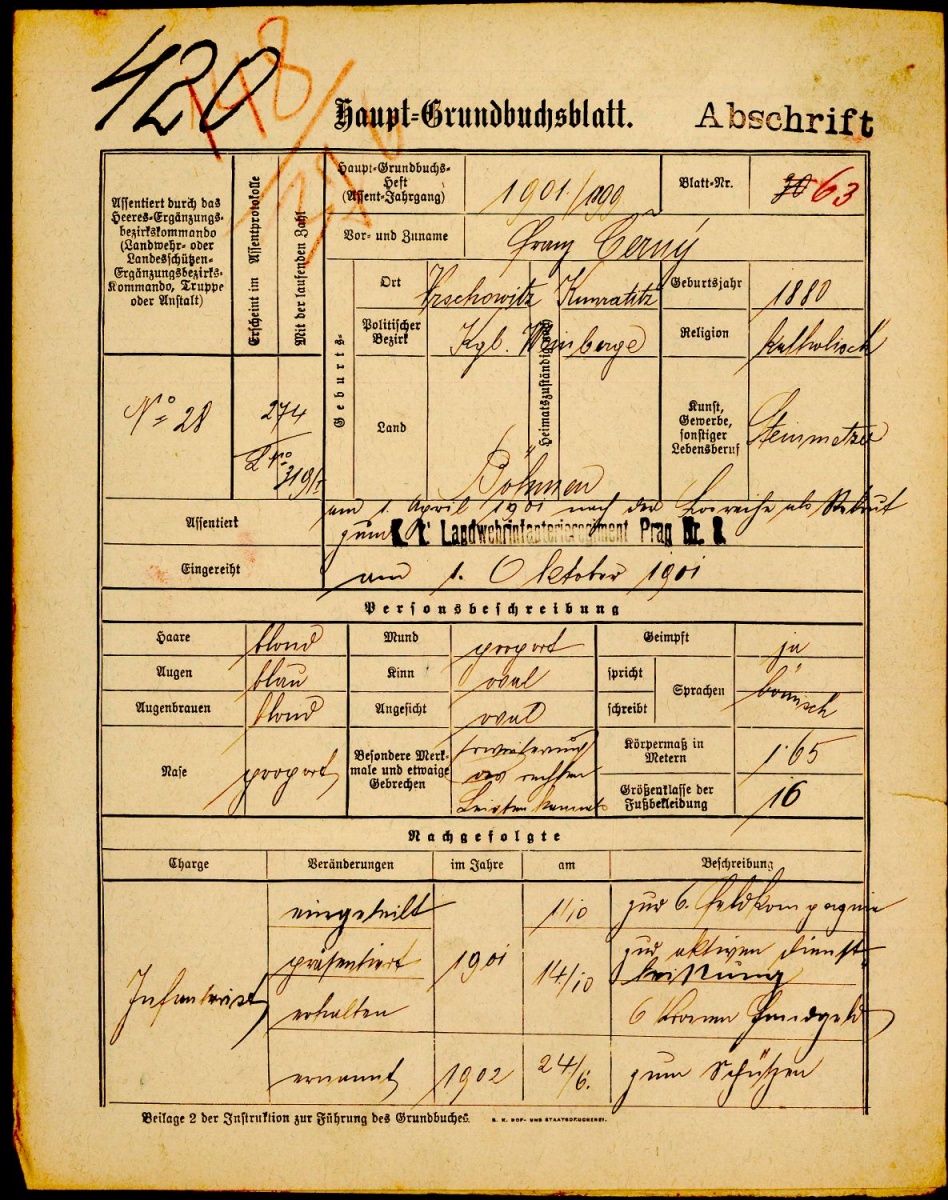 420
148
Haupt-Grundbuchsblatt.
Abschrift
Assentiert durch das
Heeres-Ergänzungs-
bezirkskommando
(Landwehr- oder
Landesschützen-
Ergänzungsbezirks-
Kommando, Truppe
oder Anstalt)
Erscheint im Assentprotokolle
Mit der laufenden Zahl
Haupt-Grundbuchs-
Heft
(Assent-Jahrgang)
1901/1999
Blatt-Nr.
30 63
Vor- und Zuname
Franz Černý
Geburts-
Ort
Wrschowitz
Heimatszuständigkeits
Kunratitz
Geburtsjahr
1880
Politischer
Bezirk
Kgl. Weinberge
Religion
katholisch
No 28
274
319/I
Land
Böhmen
Kunst,
Gewerbe,
sonstiger
Lebensberuf
Steinmetzer
Assentiert
am 1. April 1901 nach der Losreihe als Rekrut
zum K. k. Landwehrinfanterieregiment Prag Nr. 8
Eingereiht
am 1. Oktober 1901
Personsbeschreibung
Haare
blond
Mund
proport
Geimpft
ja
Augen
blau
Kinn
oval
spricht
schreibt
Sprachen
böhmisch
Augenbrauen
blond
Angesicht
oval
Nase
proport
Besondere Merk-
male und etwaige
Gebrechen
Erweiterung
des rechten
Leistenkanals
Körpermaß in
Metern
1·65
Größenklasse der
Fußbekleidung
16
Nachgefolgte
Charge
Veränderungen
im Jahre
am
Beschreibung
Infanterist
eingeteilt
1901
1/10
zur 6. Feldkompagnie
präsentiert
14/10
zur aktiven Dienst
leistung
erhalten
6 Kronen Handgeld
ernannt
1902
24/6.
zum Schützen
Beilage 2 der Instruktion zur Führung des Grundbuches.
K. K. HOF- UND STAATSDRUCKEREI.